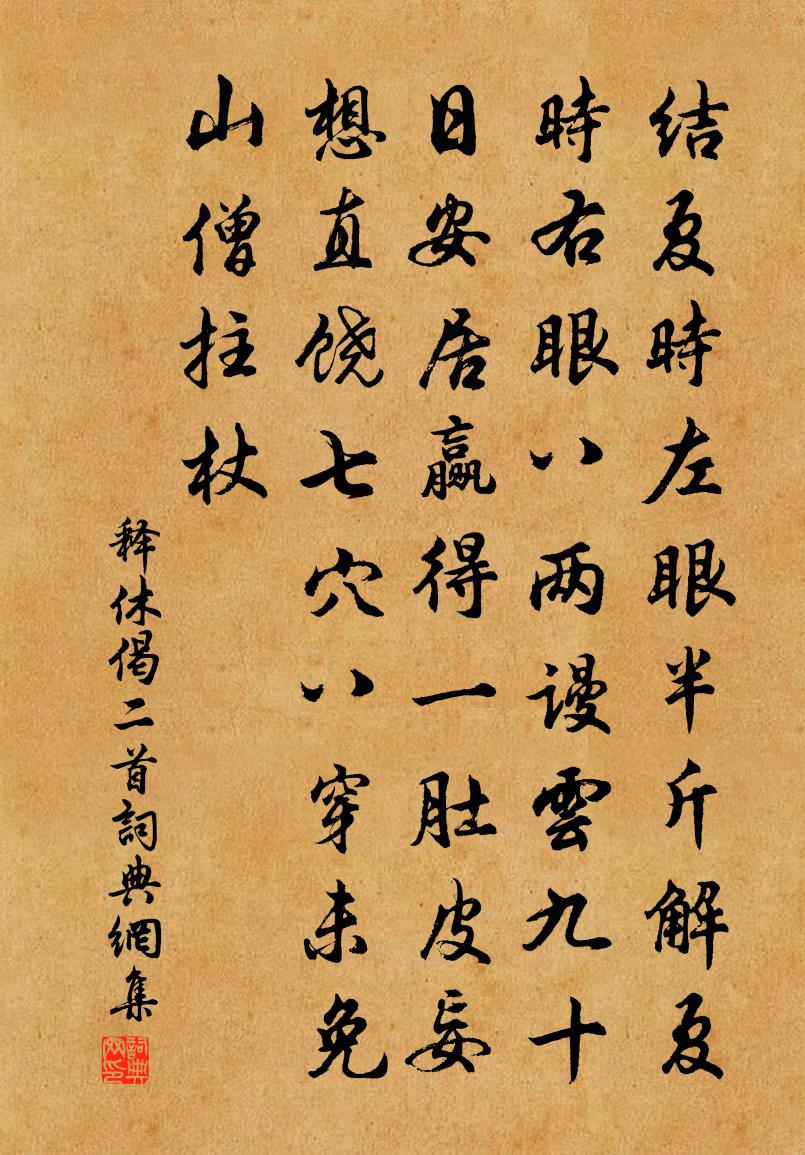 结夏時左眼半斤解夏
時右眼八两谩雲九十
日安居赢得一肚皮妄
想直饶七穴八穿未免
山僧拄杖
释休偈二首詞典網集
詞典网印